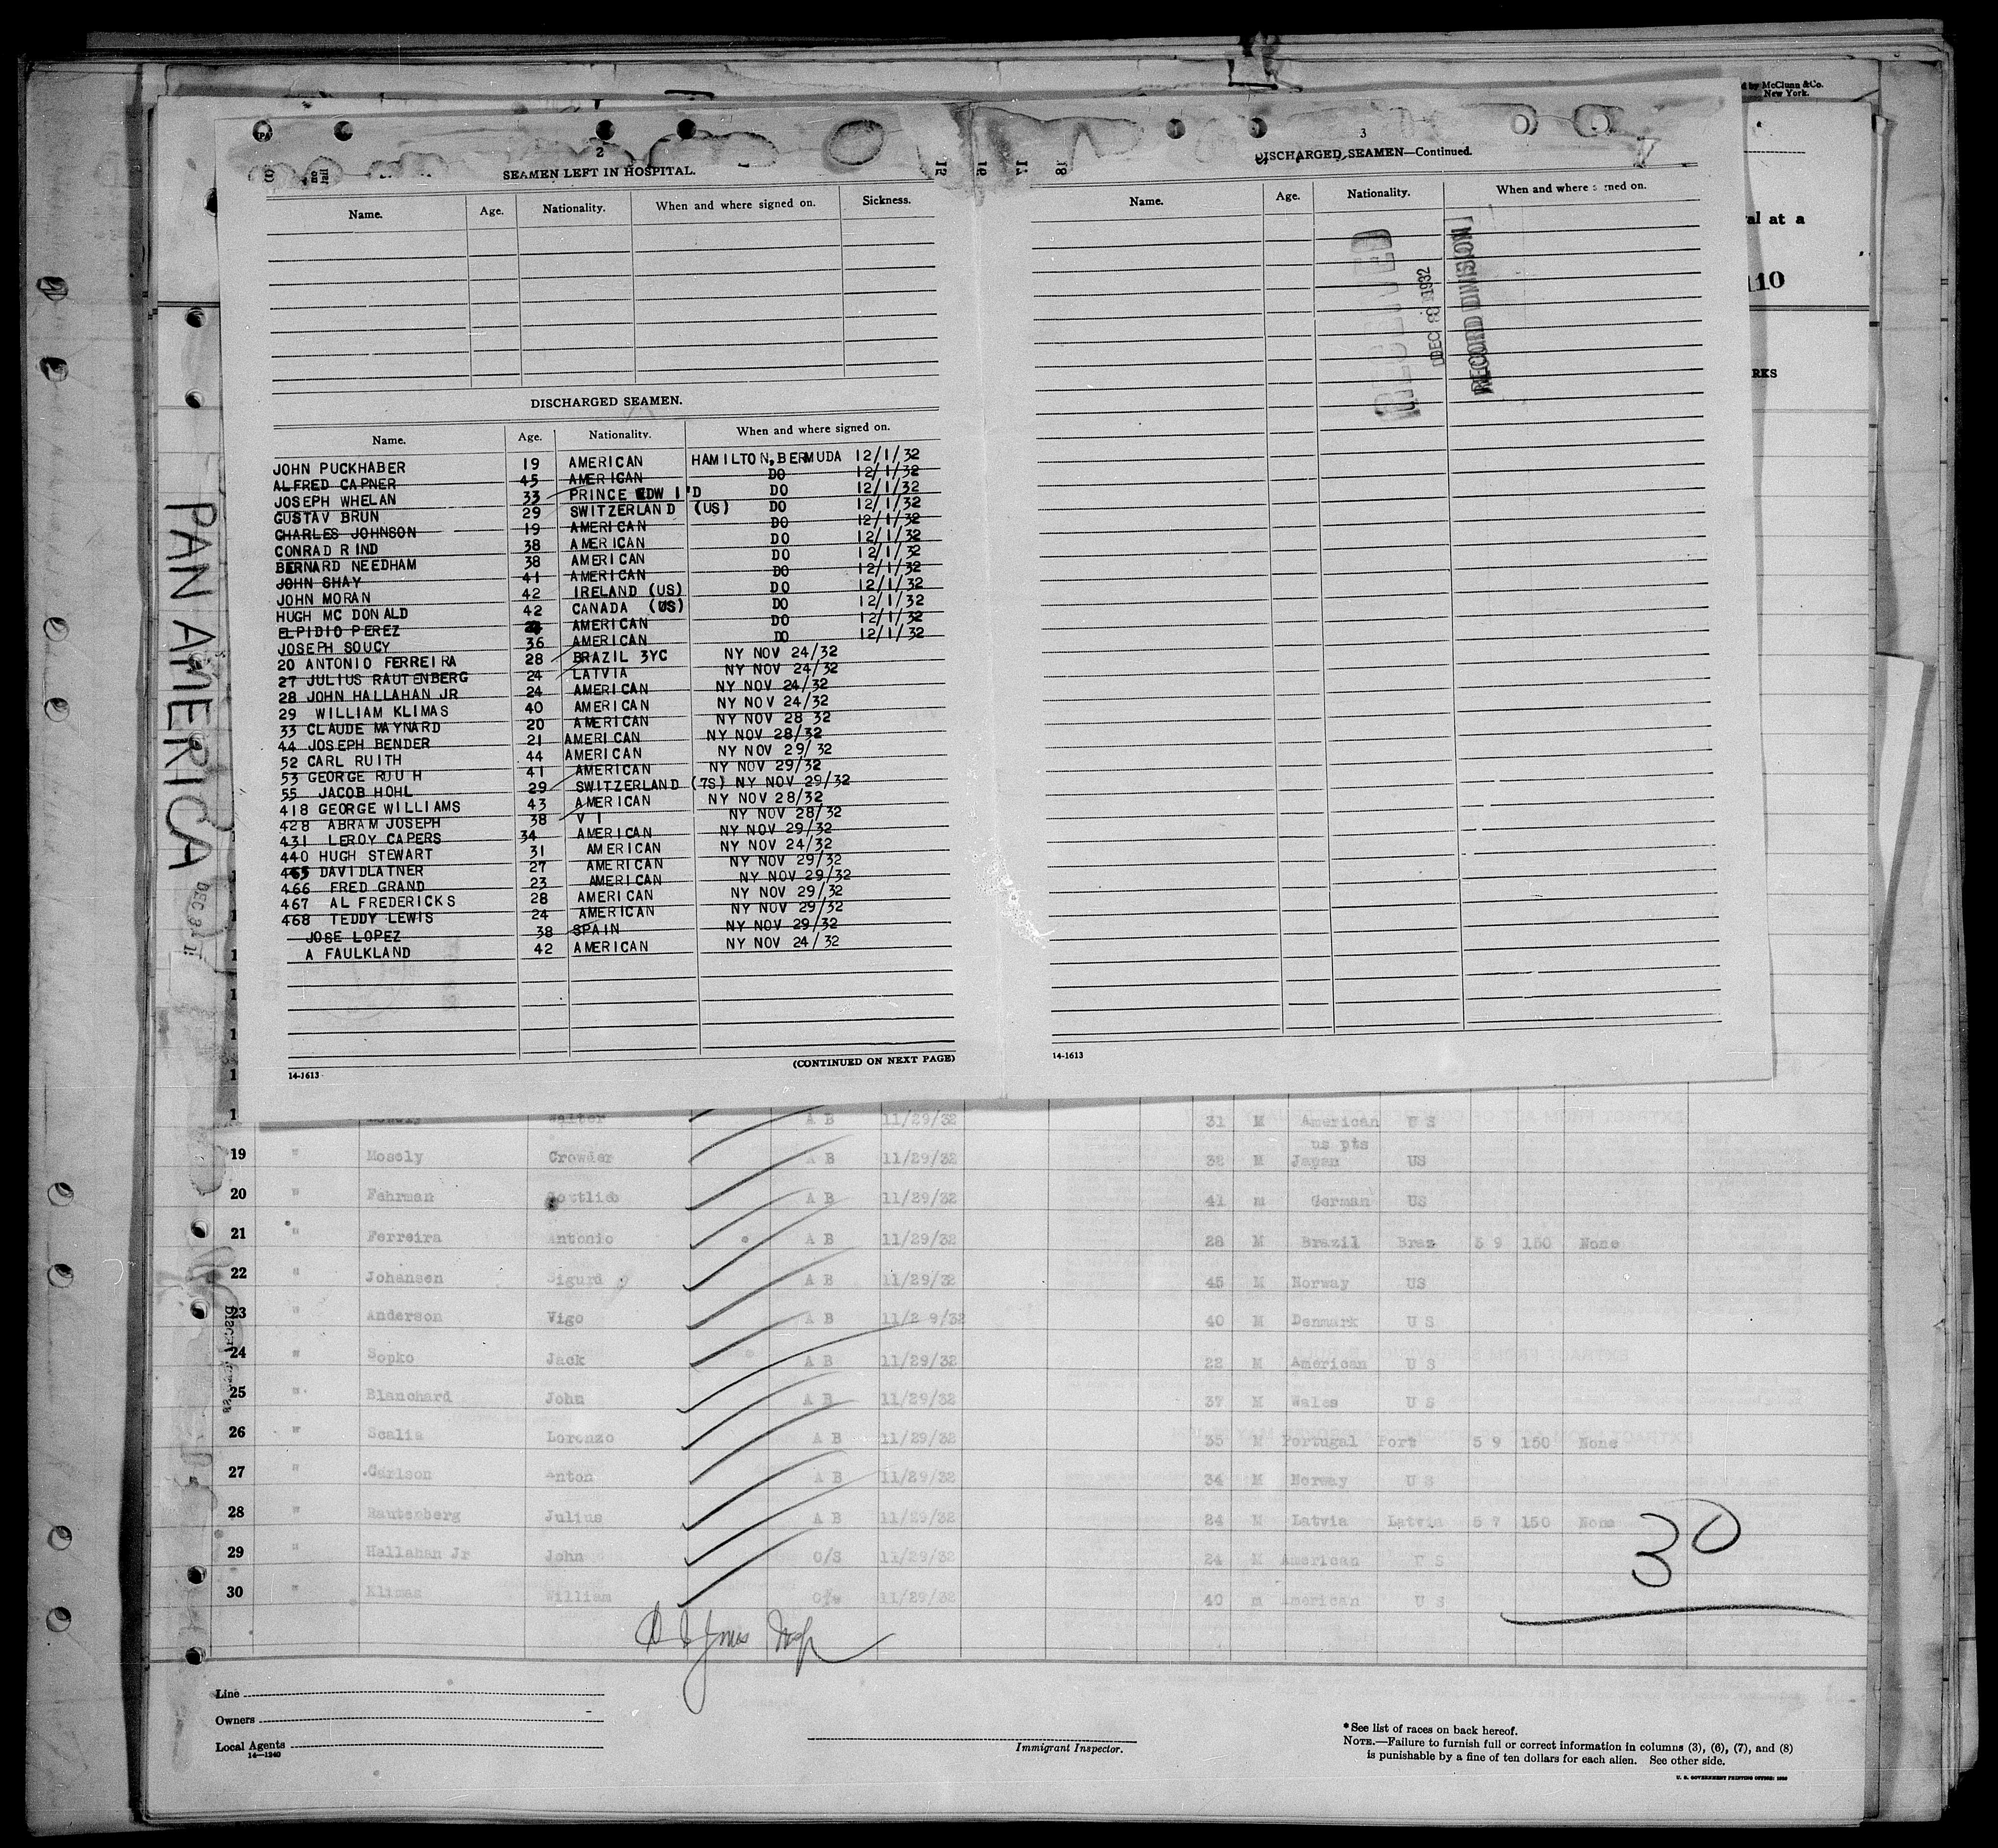 d by McClunn & Co.
New York.
al at a
110
RKS
PAN AMERICA
2
SEAMEN LEFT IN HOSPITAL.
Name. Age. Nationality. When and where signed on. Sickness.
DISCHARGED SEAMEN.
Name. Age. Nationality. When and where signed on.
JOHN PUCKHABER 19 AMERICAN HAMILTON, BERMUDA 12/1/32
ALFRED CAPNER 45 AMERICAN DO 12/1/32
JOSEPH WHELAN 33 PRINCE EDW I'D DO 12/1/32
GUSTAV BRUN 29 SWITZERLAND (US) DO 12/1/32
CHARLES JOHNSON 19 AMERICAN DO 12/1/32
CONRAD RIND 38 AMERICAN DO 12/1/32
BERNARD NEEDHAM 38 AMERICAN DO 12/1/32
JOHN SHAY 41 AMERICAN DO 12/1/32
JOHN MORAN 42 IRELAND (US) DO 12/1/32
HUGH MC DONALD 42 CANADA (US) DO 12/1/32
ELPIDIO PEREZ AMERICAN DO 12/1/32
JOSEPH SOUCY 36 AMERICAN DO 12/1/32
20 ANTONIO FERREIRA 28 BRAZIL 3YC NY NOV 24/32
27 JULIUS RAUTENBERG 24 LATVIA NY NOV 24/32
28 JOHN HALLAHAN JR 24 AMERICAN NY NOV 24/32
29 WILLIAM KLIMAS 40 AMERICAN NY NOV 24/32
33 CLAUDE MAYNARD 20 AMERICAN NY NOV 28 32
44 JOSEPH BENDER 21 AMERICAN NY NOV 28/32
52 CARL RUITH 44 AMERICAN NY NOV 29/32
53 GEORGE ROUH 41 AMERICAN NY NOV 29/32
55 JACOB HOHL 29 SWITZERLAND (7S) NY NOV 29/32
418 GEORGE WILLIAMS 43 AMERICAN NY NOV 28/32
428 ABRAM JOSEPH 38 V I NY NOV 28/32
431 LEROY CAPERS 34 AMERICAN NY NOV 29/32
440 HUGH STEWART 31 AMERICAN NY NOV 24/32
465 DAVIDLATNER 27 AMERICAN NY NOV 29/32
466 FRED GRAND 23 AMERICAN NY NOV 29/32
467 AL FREDERICKS 28 AMERICAN NY NOV 29/32
468 TEDDY LEWIS 24 AMERICAN NY NOV 29/32
JOSE LOPEZ 38 SPAIN NY NOV 29/32
A FAULKLAND 42 AMERICAN NY NOV 24/32
(CONTINUED ON NEXT PAGE)
14-1613
3
DISCHARGED SEAMEN—Continued.
Name. Age. Nationality. When and where signed on.
RECEIVED
DEC 1932
RECORD DIVISION
14-1613
Walter A B 11/29/32 31 M American U S
us pts
19 " Mosely Crowder A B 11/29/32 32 M Japan US
20 " Fehrman Gottlieb A B 11/29/32 41 m German US
21 " Ferreira Antonio A B 11/29/32 28 M Brazil Braz 5 9 150 None
22 " Johansen Sigurd A B 11/29/32 45 M Norway US
23 Anderson Vigo A B 11/2 9/32 40 M Denmark U S
24 " Sopko Jack A B 11/29/32 22 M American U S
25 " Blanchard John A B 11/29/32 37 M Wales U S
26 " Scalia Lorenzo A B 11/29/32 35 M Portugal Port 5 9 150 None
27 " Carlson Anton A B 11/29/32 34 M Norway U S
28 " Rautenberg Julius A B 11/29/32 24 M Latvia Latvia 5 7 150 None
29 " Hallahan Jr John O/S 11/29/32 24 M American U S
30 " Klimas William O/s 11/29/32 40 m American U S
30
Line
Owners
Local Agents
14—1240
Immigrant Inspector.
*See list of races on back hereof.
NOTE.—Failure to furnish full or correct information in columns (3), (6), (7), and (8)
is punishable by a fine of ten dollars for each alien. See other side.
U. S. GOVERNMENT PRINTING OFFICE: